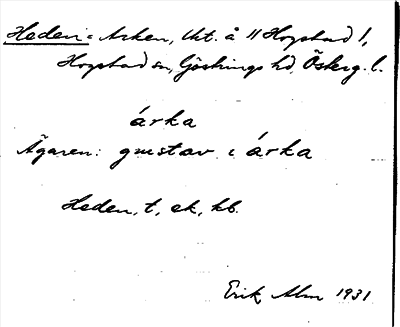 Heden i Arken, tkt. å "Hogstad 1,
Hogstad sn, Göstrings hd, Österg. l.
árka
Ägaren: gustav i árka
Heden, t, ek, kb.
Erik Alm 1931